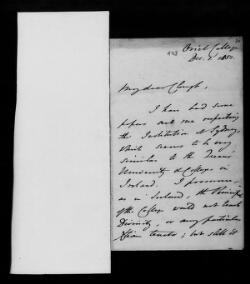 Oriel College
Dec. 5. 1851.
My dear Clough,
I have had some
papers sent me respecting
the Institution at Sydney,
which seems to be very
similar to the Queen's
University & Colleges in
Ireland. I presume,
as in Ireland, the Principal
of the College would not teach
Divinity, or any particular
Xtian tenets; but still it